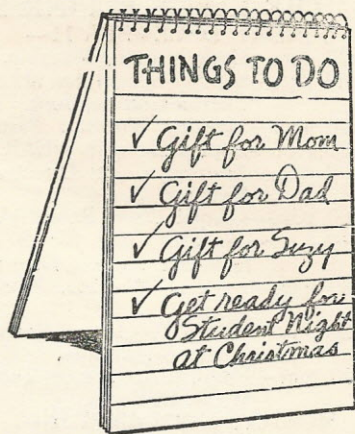 THINGS TO DO
✓ Gift for Mom
✓ Gift for Dad
✓ Gift for Suzy
✓ Get ready for
Student Night
at Christmas